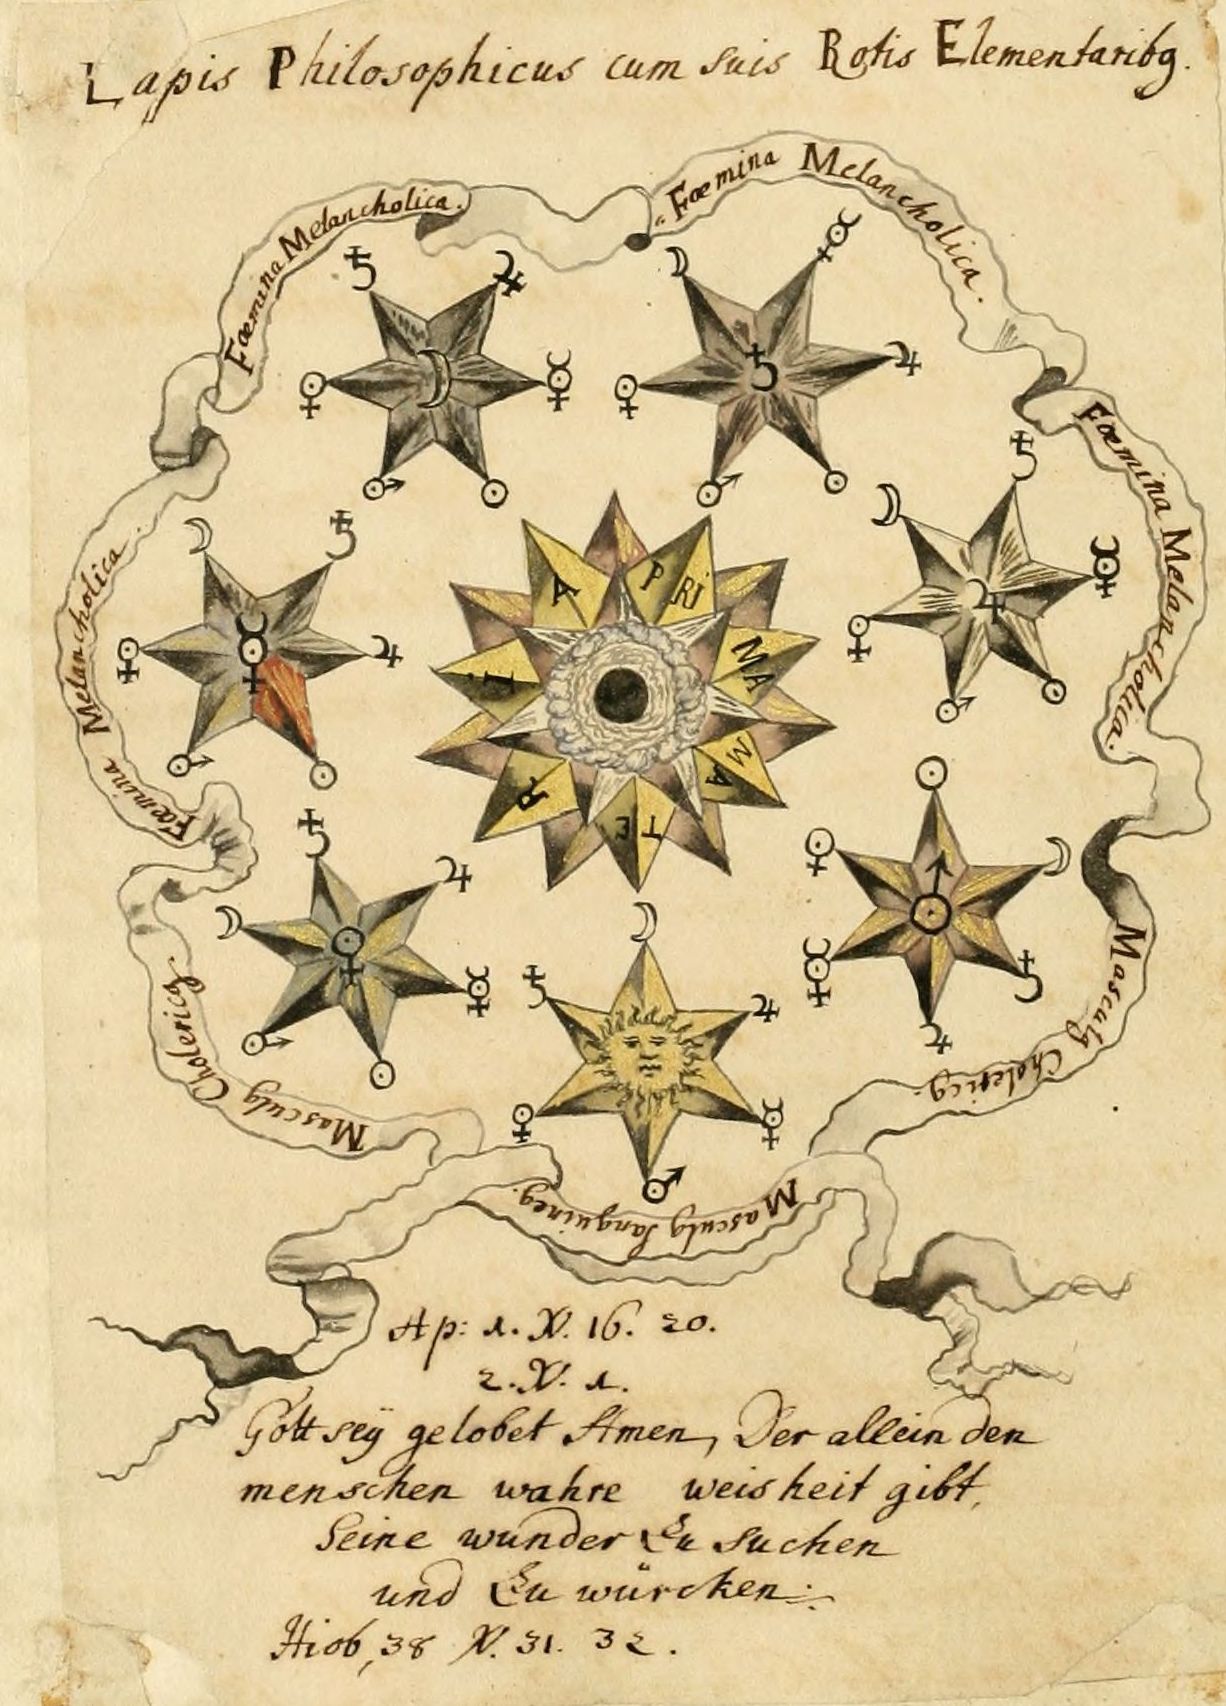 Lapis Philosophicus cum suis Rotis Elementaribꝯ.
Fœmina Melancholica.
Fœmina Melancholica.
Fœmina Melancholica.
Fœmina Melancholica.
Masculꝯ Cholericꝯ.
Masculꝯ Cholericꝯ.
Masculꝯ Sanguineꝯ.
PRI
MA
MA
TE
R
I
A
Ap: 1. V. 16. 20.
2. V. 1.
Gott seÿ gelobet Amen, Der allein den
menschen wahre weisheit gibt,
Seine wunder Zu suchen
und Zu würcken:
Hiob, 38 V. 31. 32.